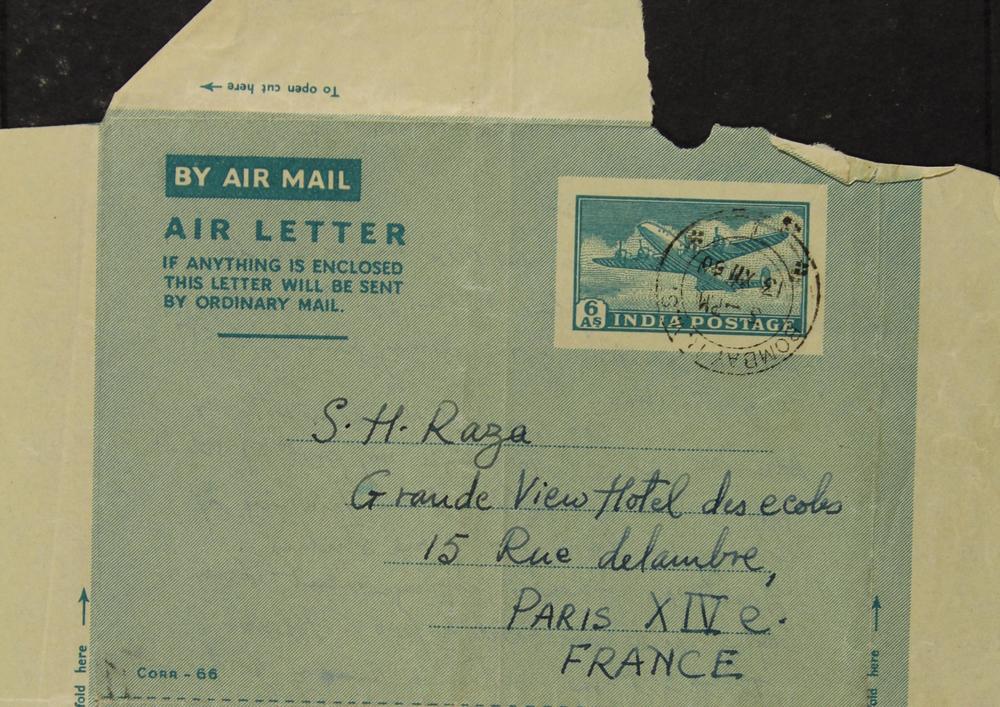 To open cut here
BY AIR MAIL
AIR LETTER
IF ANYTHING IS ENCLOSED
THIS LETTER WILL BE SENT
BY ORDINARY MAIL.
6
AS
INDIA POSTAGE
BOMBAY
PM
13 XII 50
S. H. Raza
Grande View Hotel des ecoles
15 Rue delambre,
PARIS XIV e.
FRANCE
CORR - 66
fold here
fold here